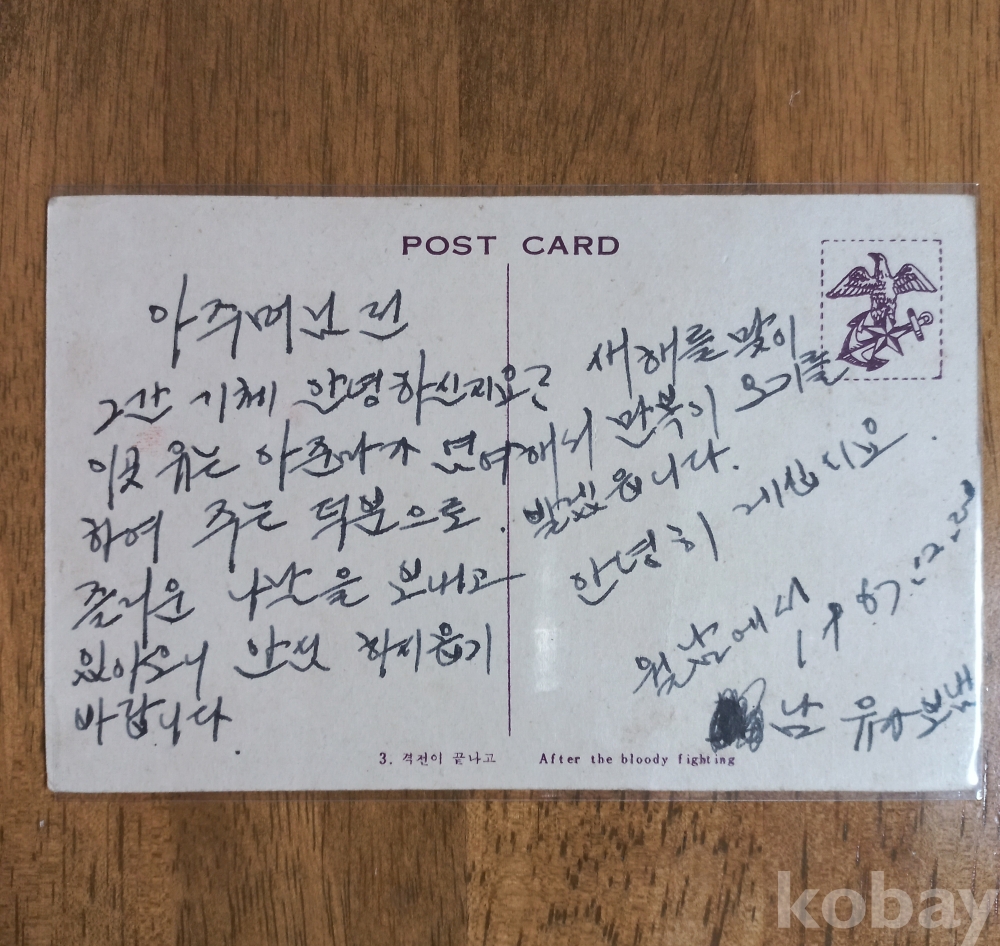 POST CARD
아주머님 전
그간 기체 안녕하신지요?
이곳 유는 아준마가 염여
하여 주는 덕분으로.
즐거운 나날을 보내고
있아오니 안심 하시옵기
바랍니다.
새해를 맞이
해서 만복이 오기를
빌겠읍니다.
안녕히 계십시요.
월남에서 1967.12.20
남 유가 보냄
3. 격전이 끝나고
After the bloody fighting
kobay